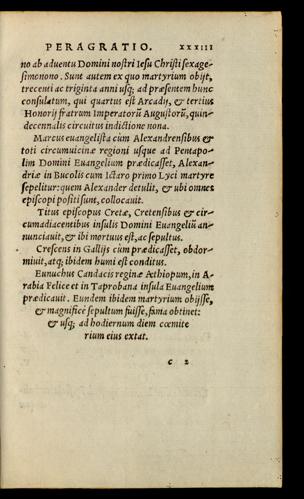 PERAGRATIO. XXXIII
no ab aduentu Domini nostri Iesu Christi sexage-
simonono. Sunt autem ex quo martyrium obijt,
trecenti ac triginta anni usq; ad præsentem hunc
consulatum, qui quartus est Arcadij, & tertius
Honorij fratrum Imperatorũ Augustorũ, quin-
decennalis circuitus indictione nona.
Marcus euangelista cùm Alexandrensibus &
toti circumuicinæ regioni usque ad Pentapo-
lim Domini Euangelium prædicasset, Alexan-
driæ in Bucolis cum Ictaro primo Lyci martyre
sepelitur: quem Alexander detulit, & ubi omnes
episcopi positi sunt, collocauit.
Titus episcopus Cretæ, Cretensibus & cir-
cumadiacentibus insulis Domini Euangeliũ an-
nunciauit, & ibi mortuus est, ac sepultus.
Crescens in Gallijs cùm prædicasset, obdor-
miuit, atq; ibidem humi est conditus.
Eunuchus Candacis reginæ Æthiopum, in A-
rabia Felice et in Taprobana insula Euangelium
prædicauit. Eundem ibidem martyrium obijsse,
& magnificè sepultum fuisse, fama obtinet:
& usq; ad hodiernum diem cœmite
rium eius extat.
c 2